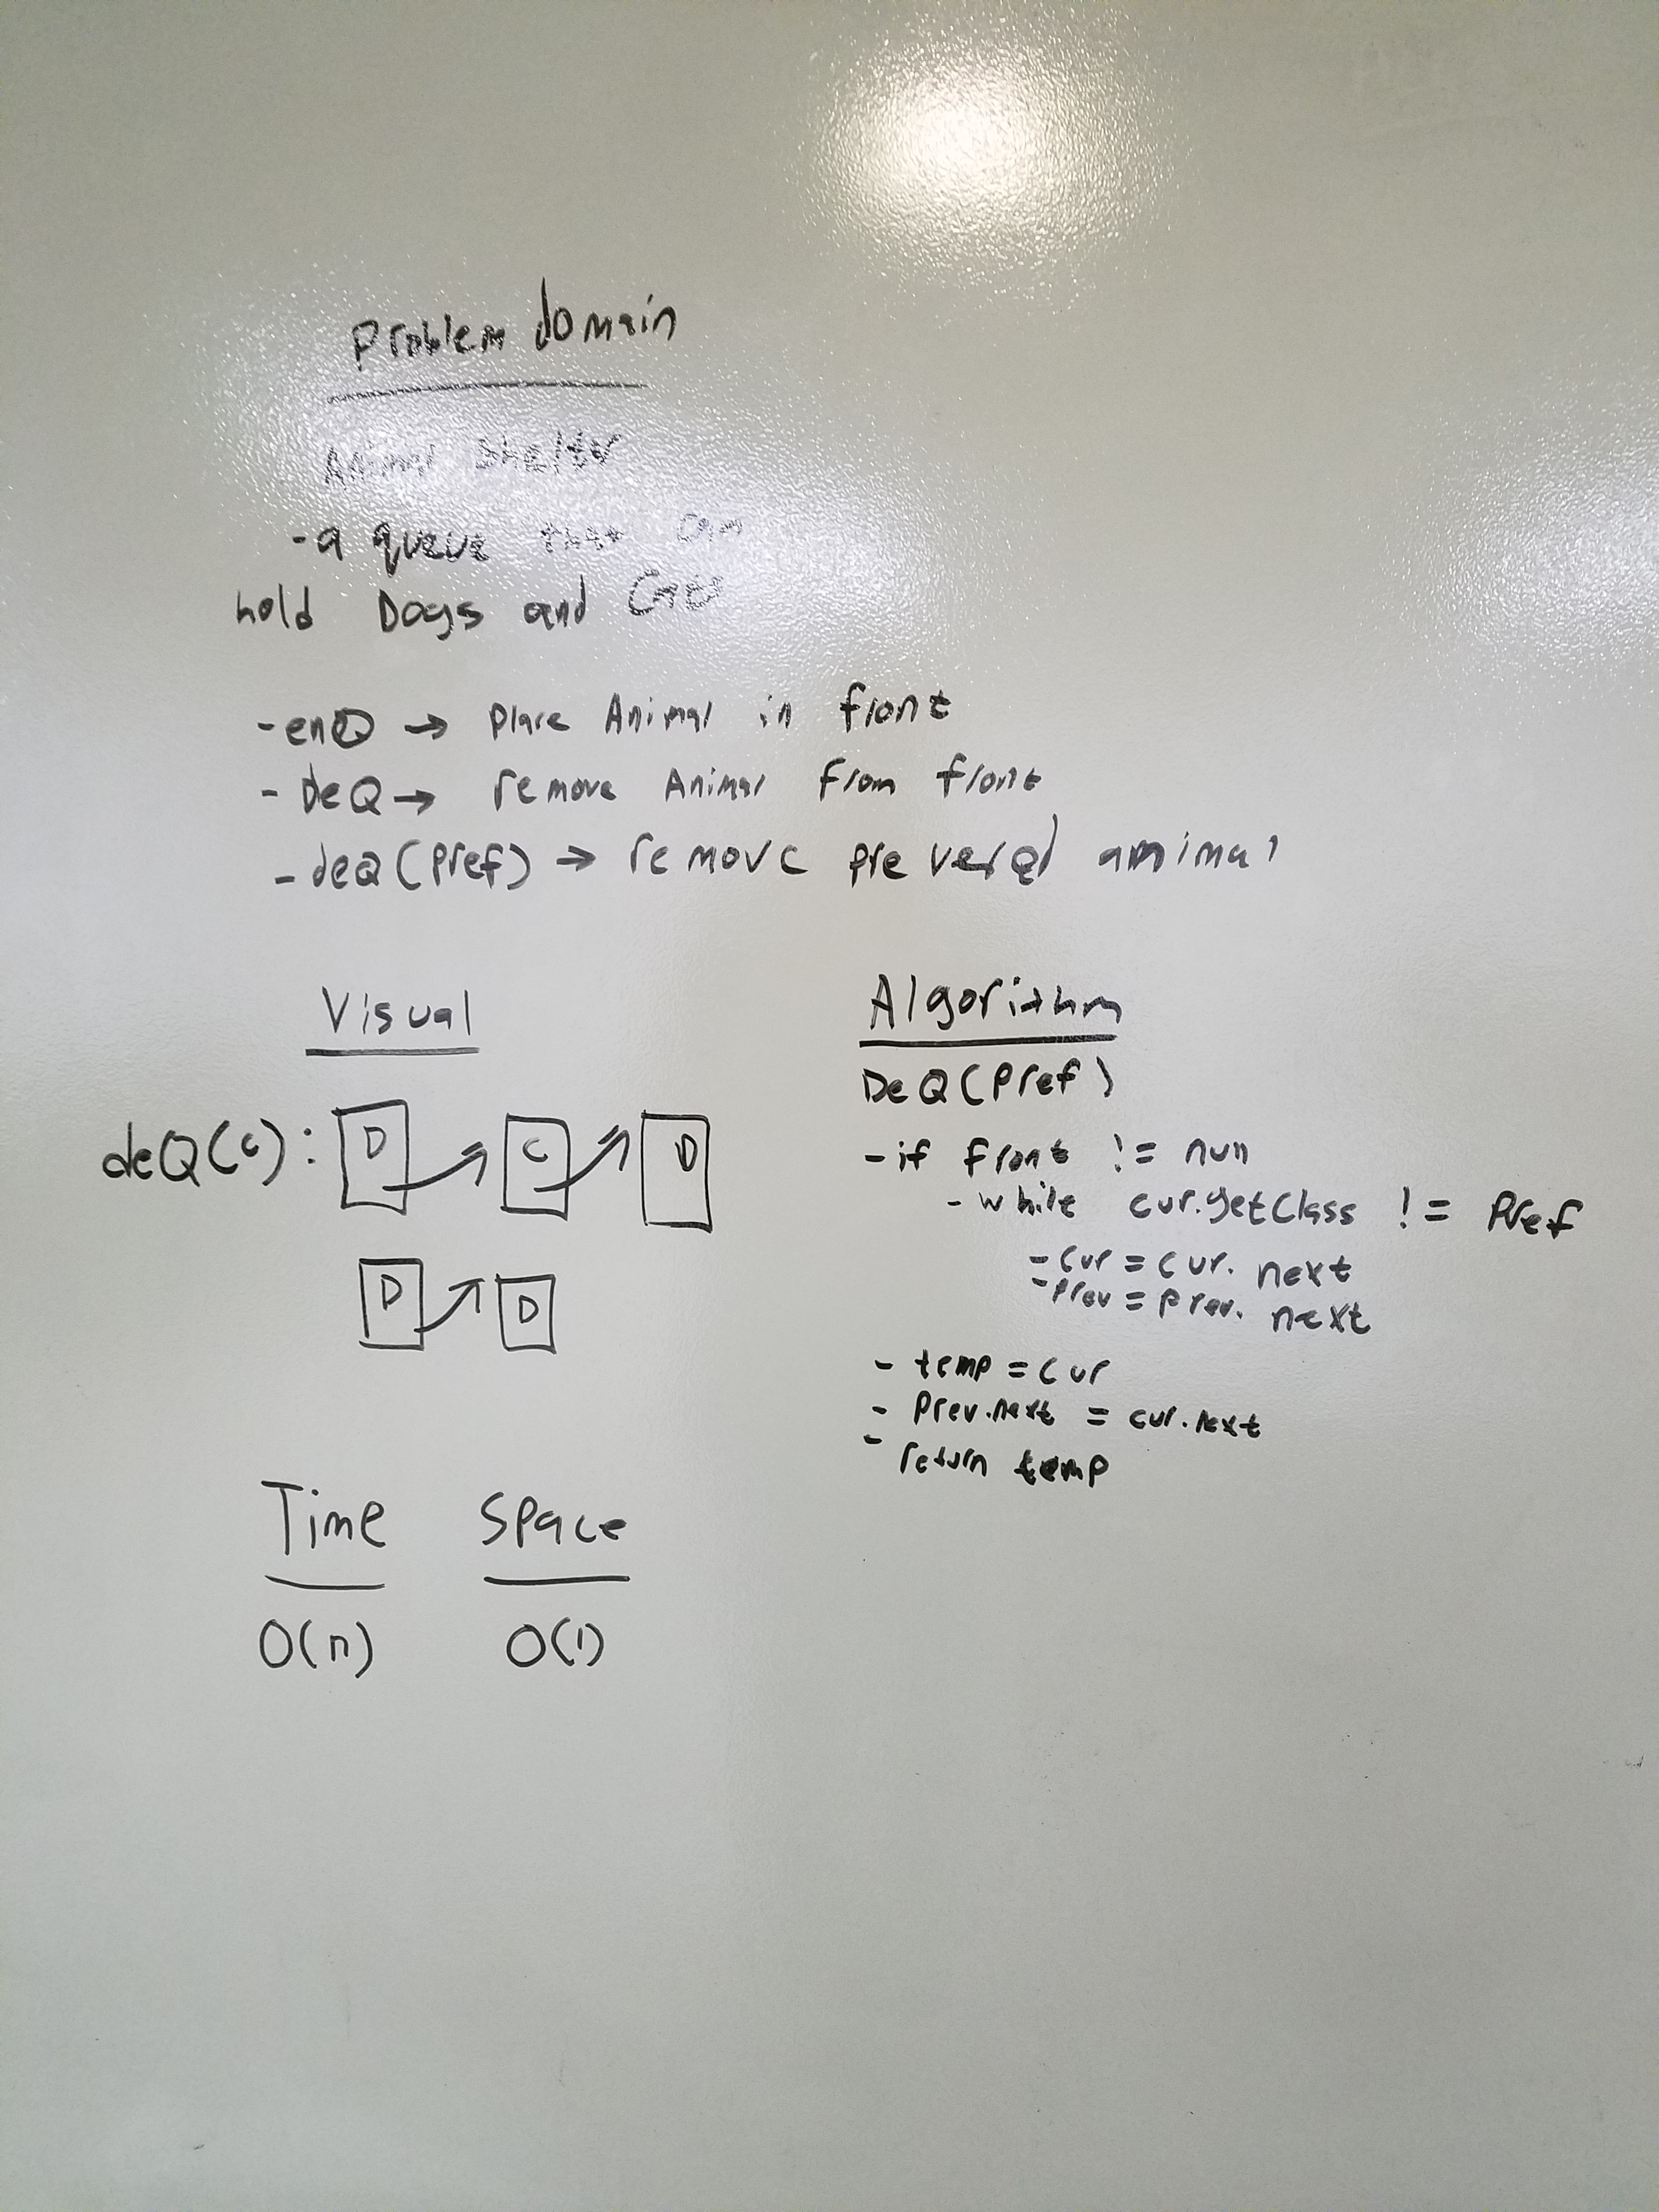 Problem domain
Animal Shelter
- a queue that can
hold Dogs and Cats
- enQ → Place Animal in front
- DeQ → remove Animal from front
- deQ(Pref) → remove prevered animal
Visual
deQ(c): D C D
D D
Time Space
O(n) O(1)
Algorithm
DeQ(Pref)
- if front != null
- while cur.getClass != Pref
- cur = cur. next
- prev = prev. next
- temp = cur
- Prev.next = cur.next
- return temp